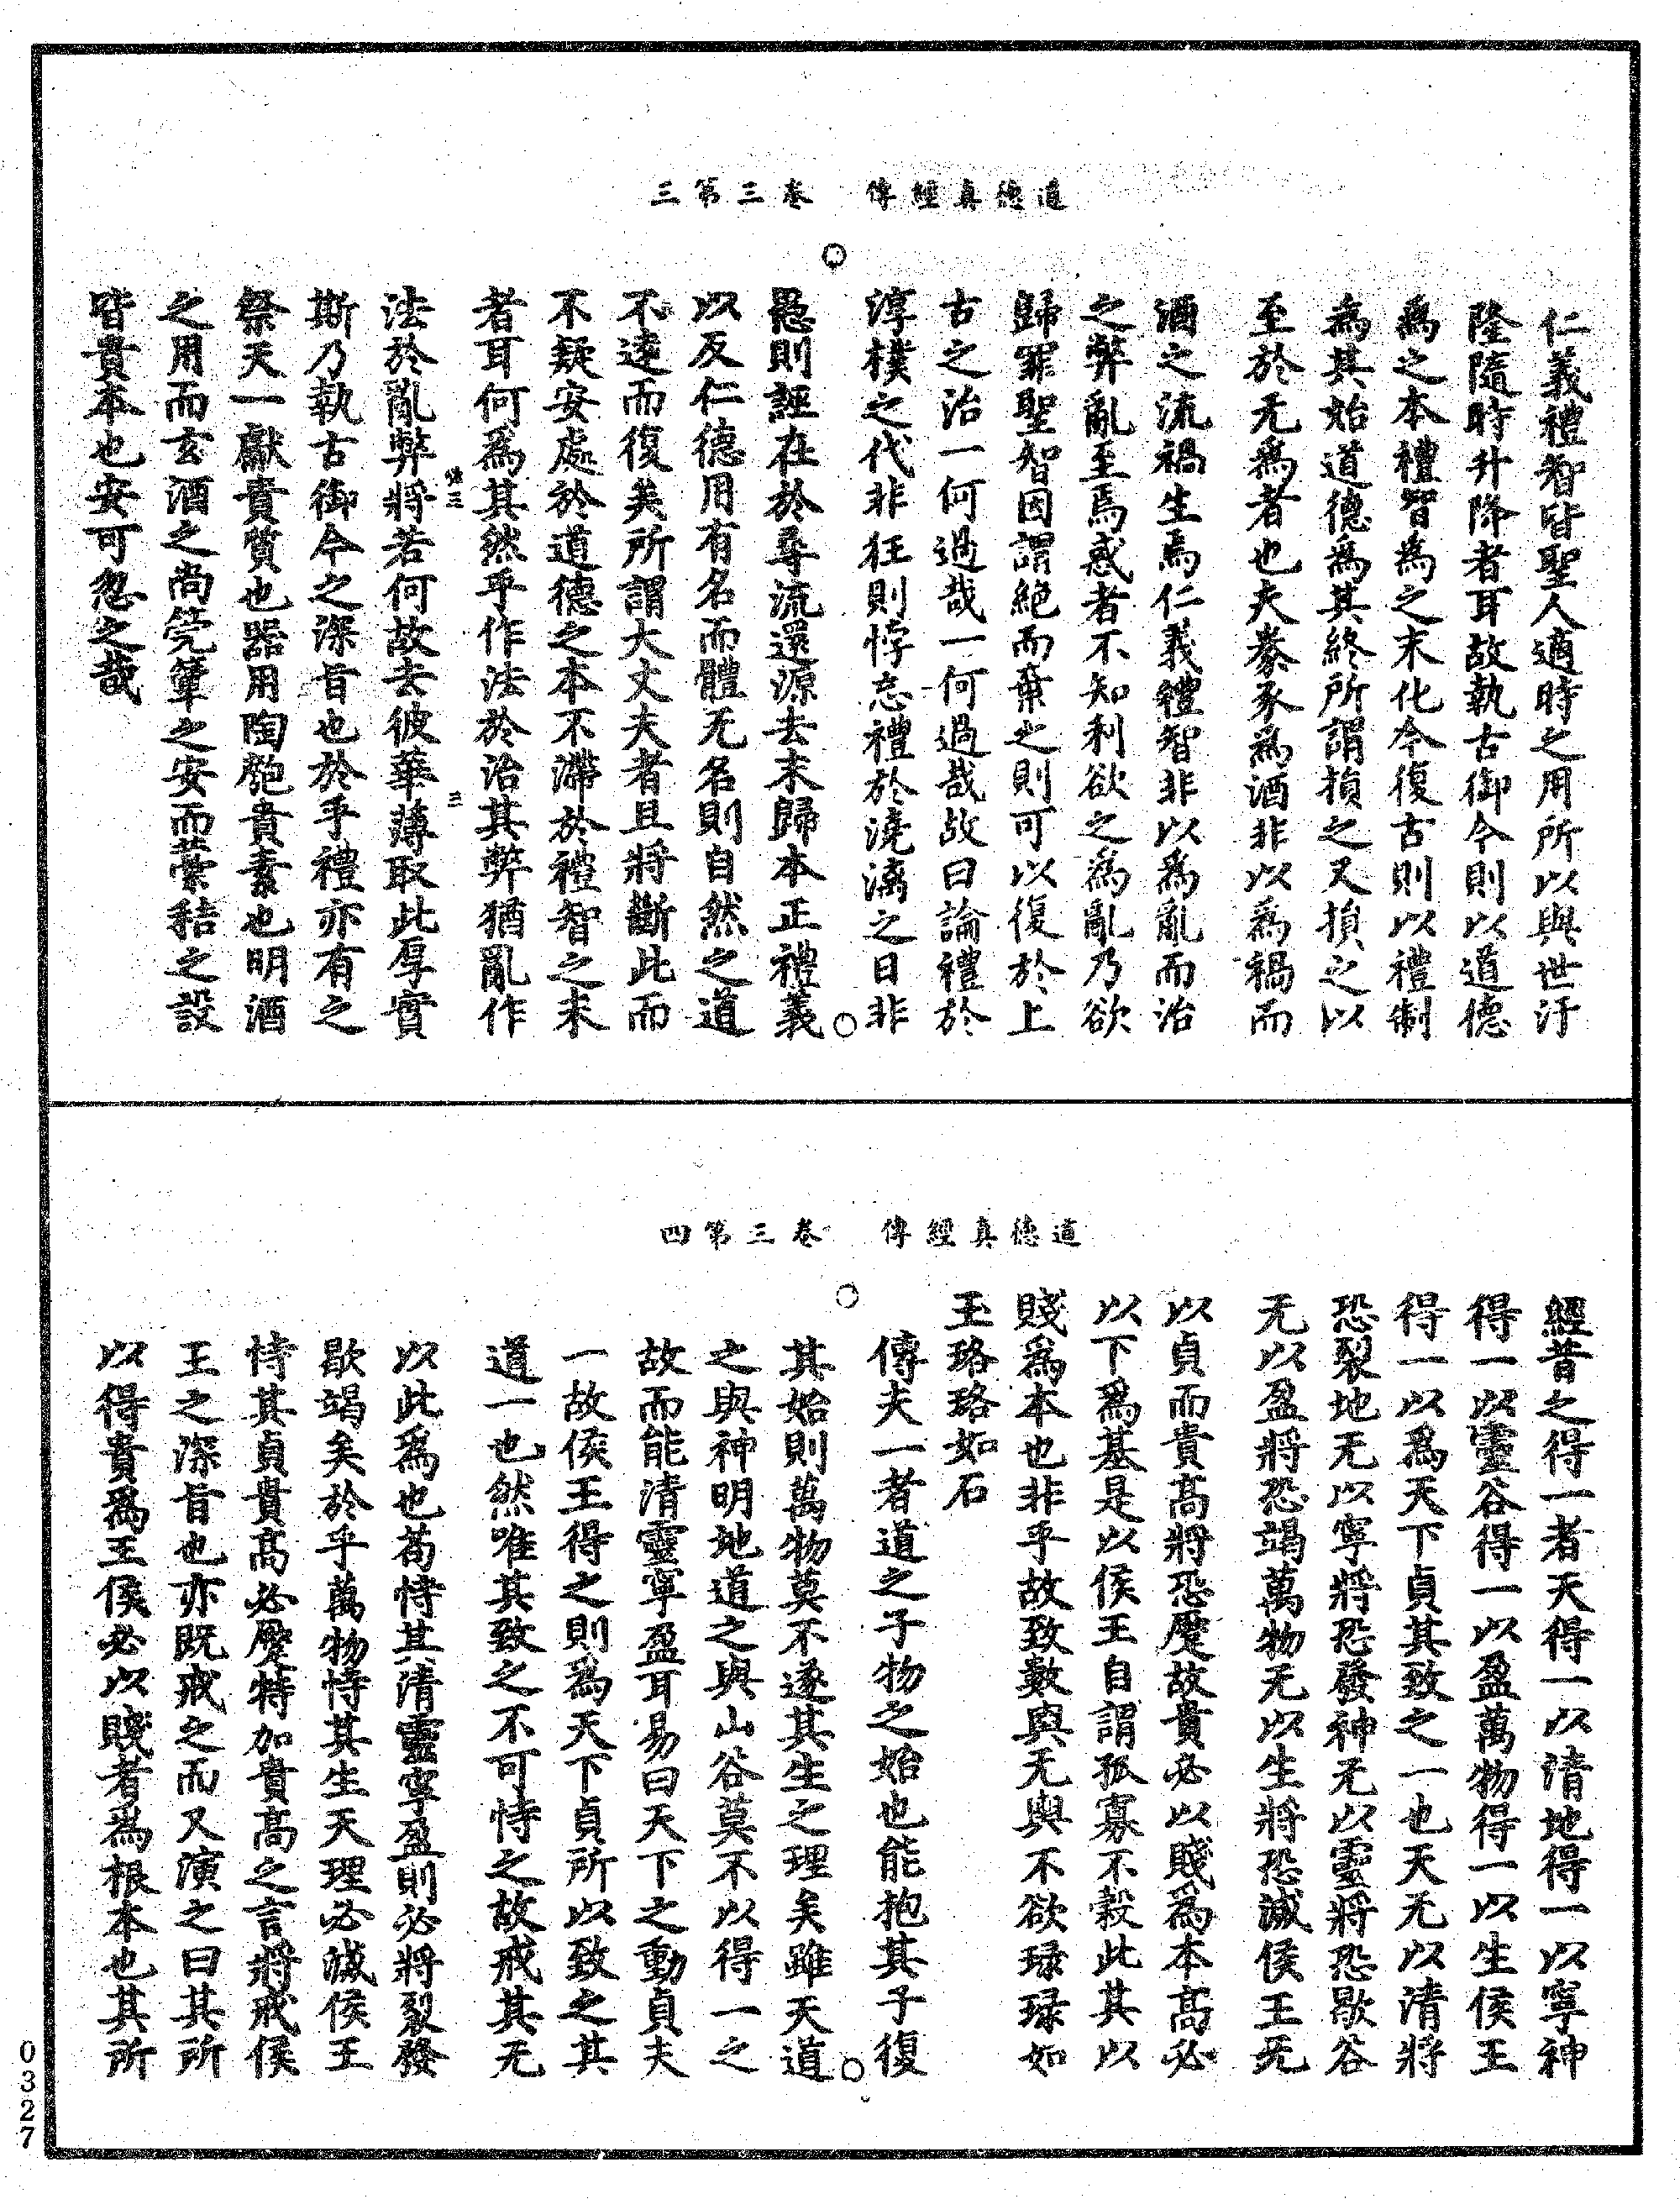 道德真經傳　卷三第三
仁義禮智皆聖人適時之用所以與世汙
隆隨時升降者耳故執古御今則以道德
爲之本禮智爲之末化今復古則以禮制
爲其始道德爲其終所謂損之又損之以
至於无爲者也夫豢豕爲酒非以爲禍而
酒之流禍生焉仁義禮智非以爲亂而治
之弊亂至焉惑者不知利欲之爲亂乃欲
歸罪聖智因謂絕而棄之則可以復於上
古之治一何過哉一何過哉故曰論禮於
淳樸之代非狂則悖忘禮於澆漓之日非
愚則誣在於尋流還源去末歸本正禮義
以反仁德用有名而體无名則自然之道
不遠而復矣所謂大丈夫者且將斷此而
不疑安處於道德之本不滯於禮智之末
者耳何爲其然乎作法於治其弊猶亂作
法於亂弊將若何故去彼華薄取此厚實
斯乃執古御今之深旨也於乎禮亦有之
祭天一獻貴質也器用陶匏貴素也明酒
之用而玄酒之尚筦簟之安而藁秸之設
皆貴本也安可忽之哉
道德真經傳　卷三第四
經昔之得一者天得一以清地得一以寧神
得一以靈谷得一以盈萬物得一以生侯王
得一以爲天下貞其致之一也天无以清將
恐裂地无以寧將恐發神无以靈將恐歇谷
无以盈將恐竭萬物无以生將恐滅侯王无
以貞而貴高將恐蹙故貴必以賤爲本高必
以下爲基是以侯王自謂孤寡不穀此其以
賤爲本也非乎故致數與无與不欲琭琭如
玉珞珞如石
傳夫一者道之子物之始也能抱其子復
其始則萬物莫不遂其生之理矣雖天道
之與神明地道之與山谷莫不以得一之
故而能清靈寧盈耳易曰天下之動貞夫
一故侯王得之則爲天下貞所以致之其
道一也然唯其致之不可恃之故戒其无
以此爲也苟恃其清靈寧盈則必將裂發
歇竭矣於乎萬物恃其生天理必滅侯王
恃其貞貴高必蹙特加貴高之言將戒侯
王之深旨也亦既戒之而又演之曰其所
以得貴爲王侯必以賤者爲根本也其所
0327